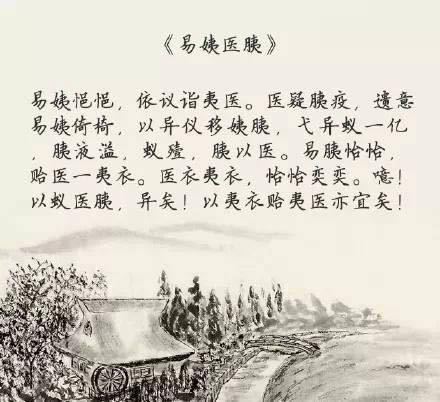 《易姨医胰》
易姨悒悒，依议诣夷医。医疑胰疫，遗意
易姨倚椅，以异仪移姨胰，弋异蚁一亿
，胰液溢，蚁殪，胰以医。易胰怡怡，
贻医一夷衣。医衣夷衣，怡怡奕奕。噫！
以蚁医胰，异矣！以夷衣贻夷医亦宜矣！